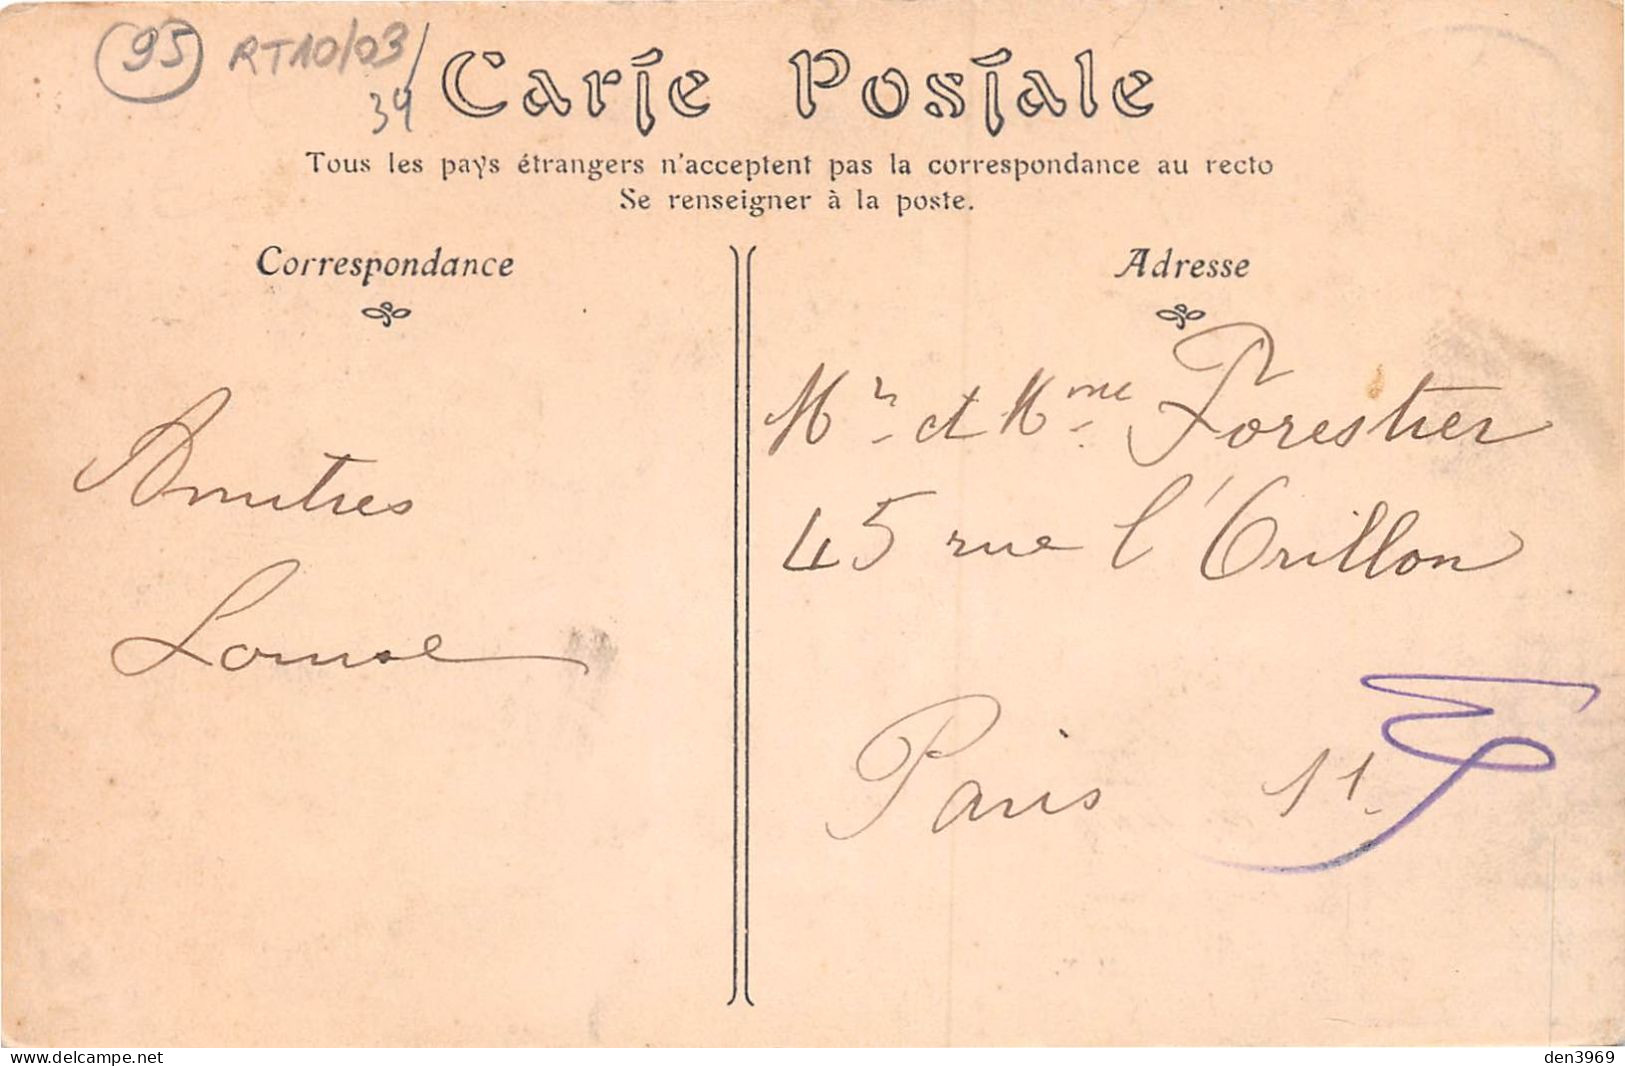 95 RT10/03
34
Carte Postale
Tous les pays étrangers n'acceptent pas la correspondance au recto
Se renseigner à la poste.
Correspondance
Adresse
Amities
Louise
Mr et Mme Forestier
45 rue l'Orillon
Paris 11
www.delcampe.net
den3969